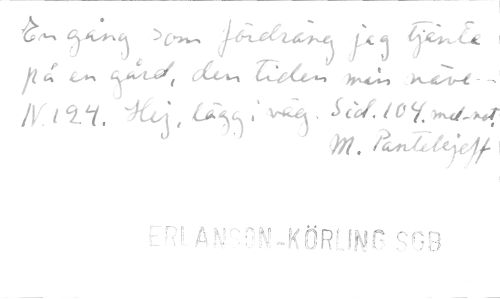 En gång som fördräng jag tjänte
på en gård, den tiden min näve--
N. 124. Hej, lägg i väg. Sid. 104. med not.
M. Pantelejeff
ERLANSON-KÖRLING SGB